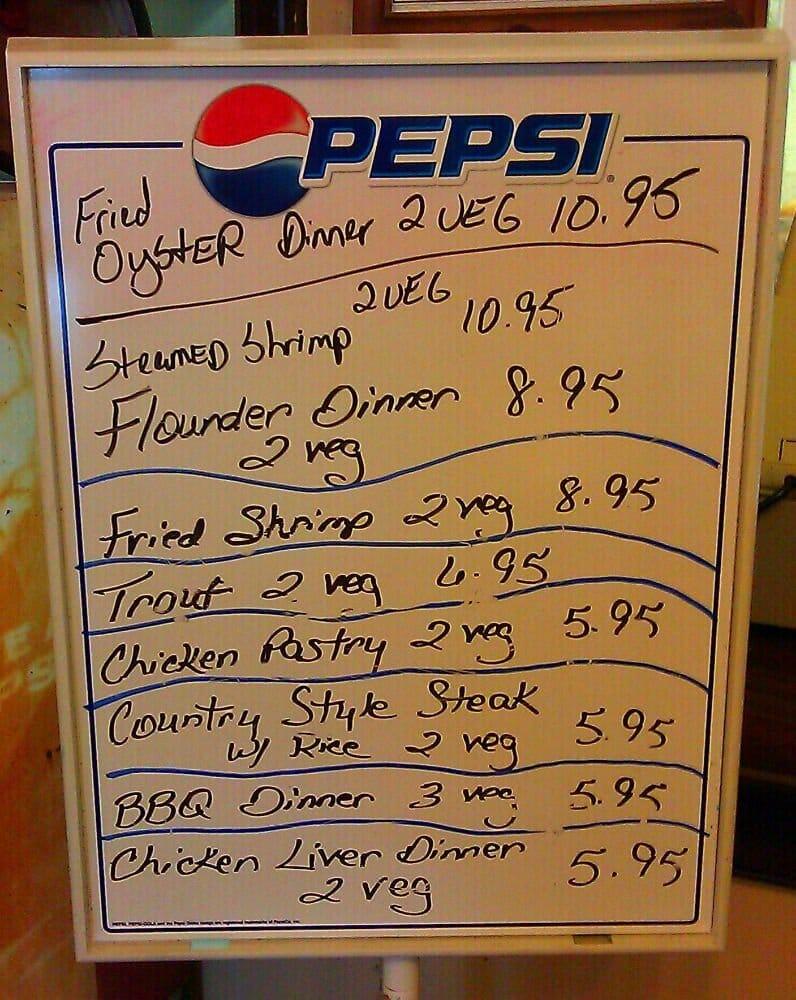 PEPSI
Fried
OYSTER Dinner 2 VEG 10.95
2 VEG
STEAMED Shrimp 10.95
Flounder Dinner 8.95
2 veg
Fried Shrimp 2 veg 8.95
Trout 2 veg 6.95
Chicken Pastry 2 veg 5.95
Country Style Steak
w/ Rice 2 veg 5.95
BBQ Dinner 3 veg 5.95
Chicken Liver Dinner 5.95
2 veg